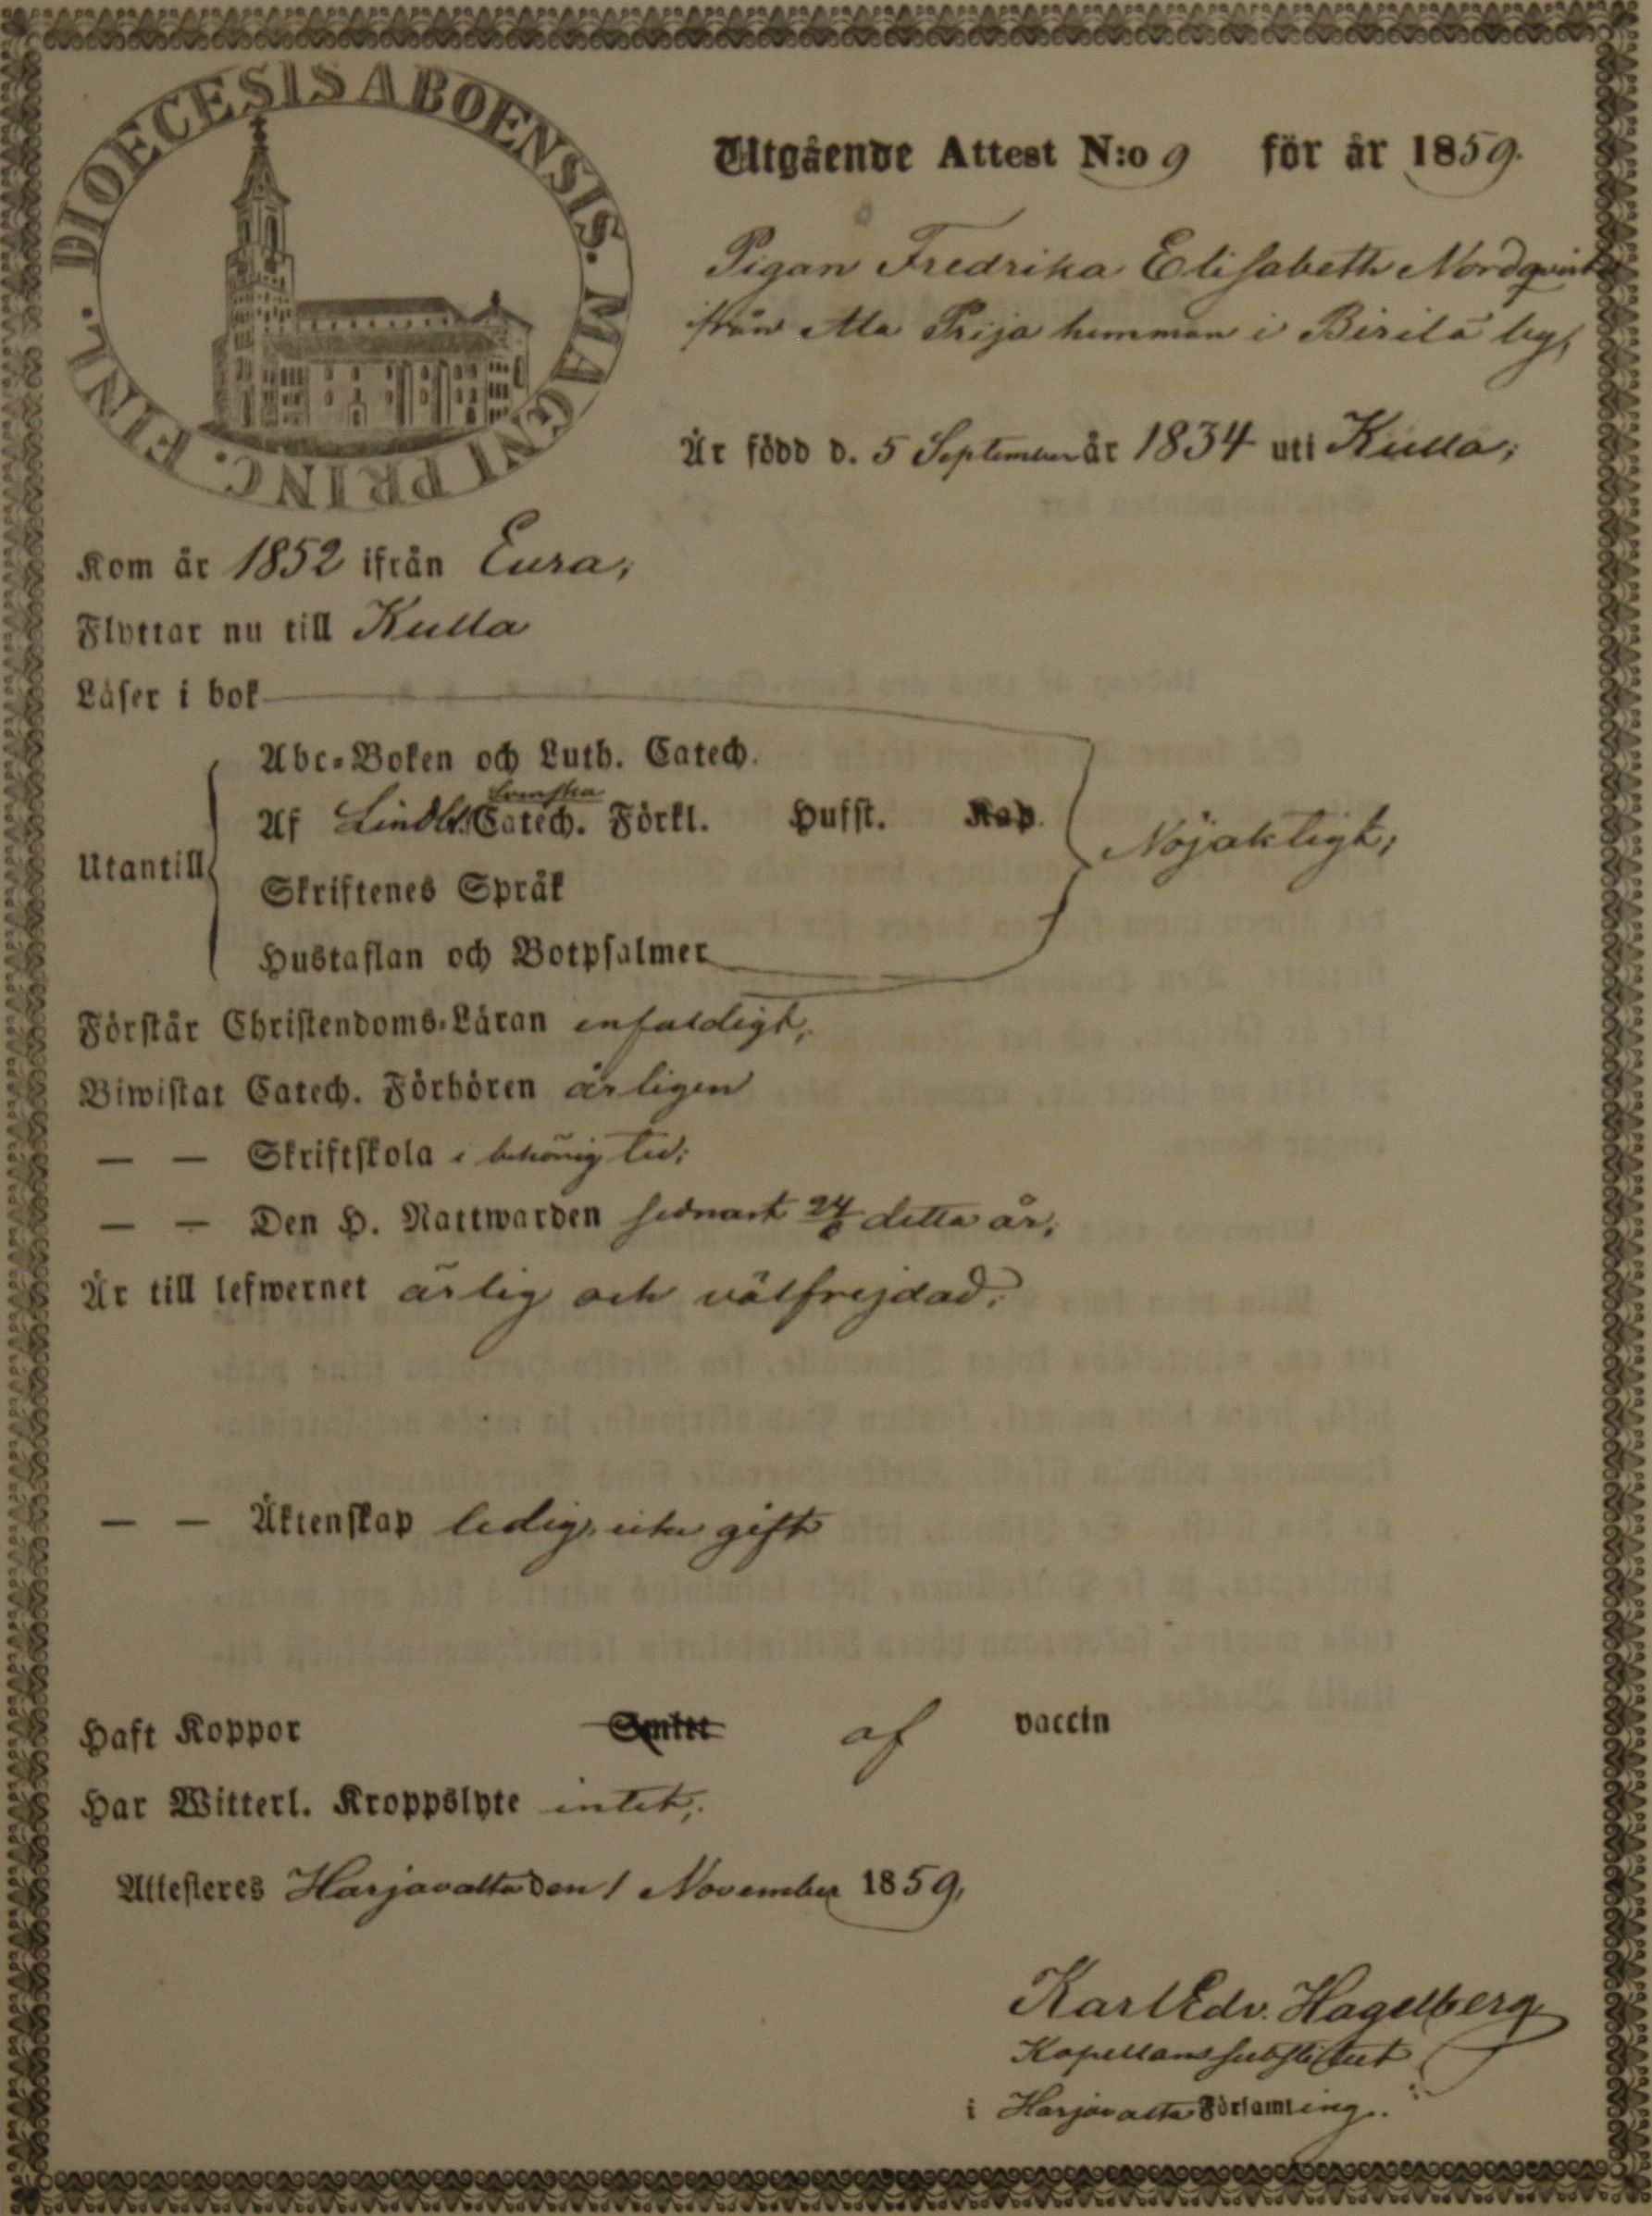 DIOECESIS ABOENSIS. MAGNI PRINC. FINL.
Utgående Attest N:o 9 för år 1859.
Pigan Fredrika Elisabeth Nordqvist
ifrån Ala Prija hemman i Birilä by,
Är född d. 5 September år 1834 uti Kulla;
Kom år 1852 ifrån Eura;
Flyttar nu till Kulla
Läser i bok
Abc-Boken och Luth. Catech.
Svenska
Af Lindbl. Catech. Förkl. Hufst. Kap.
Nöjaktigt;
Utantill
Skriftenes Språk
Hustaflan och Botpsalmer
Förstår Christendoms-Läran enfaldigt;
Biwistat Catech. Förhören årligen
— — Skriftskola i behörig tid;
— — Den H. Nattwarden sednast 24/ detta år;
Är till lefwernet ärlig och välfrejdad;
— — Äktenskap ledig, icke gift
Haft Koppor Smitt af vaccin
Har Witterl. Kroppslyte intet;
Attesteres Harjavalta den 1 November 1859,
Karl Edv. Hagelberg
Kapellans substitut
i Harjavalta Församling.